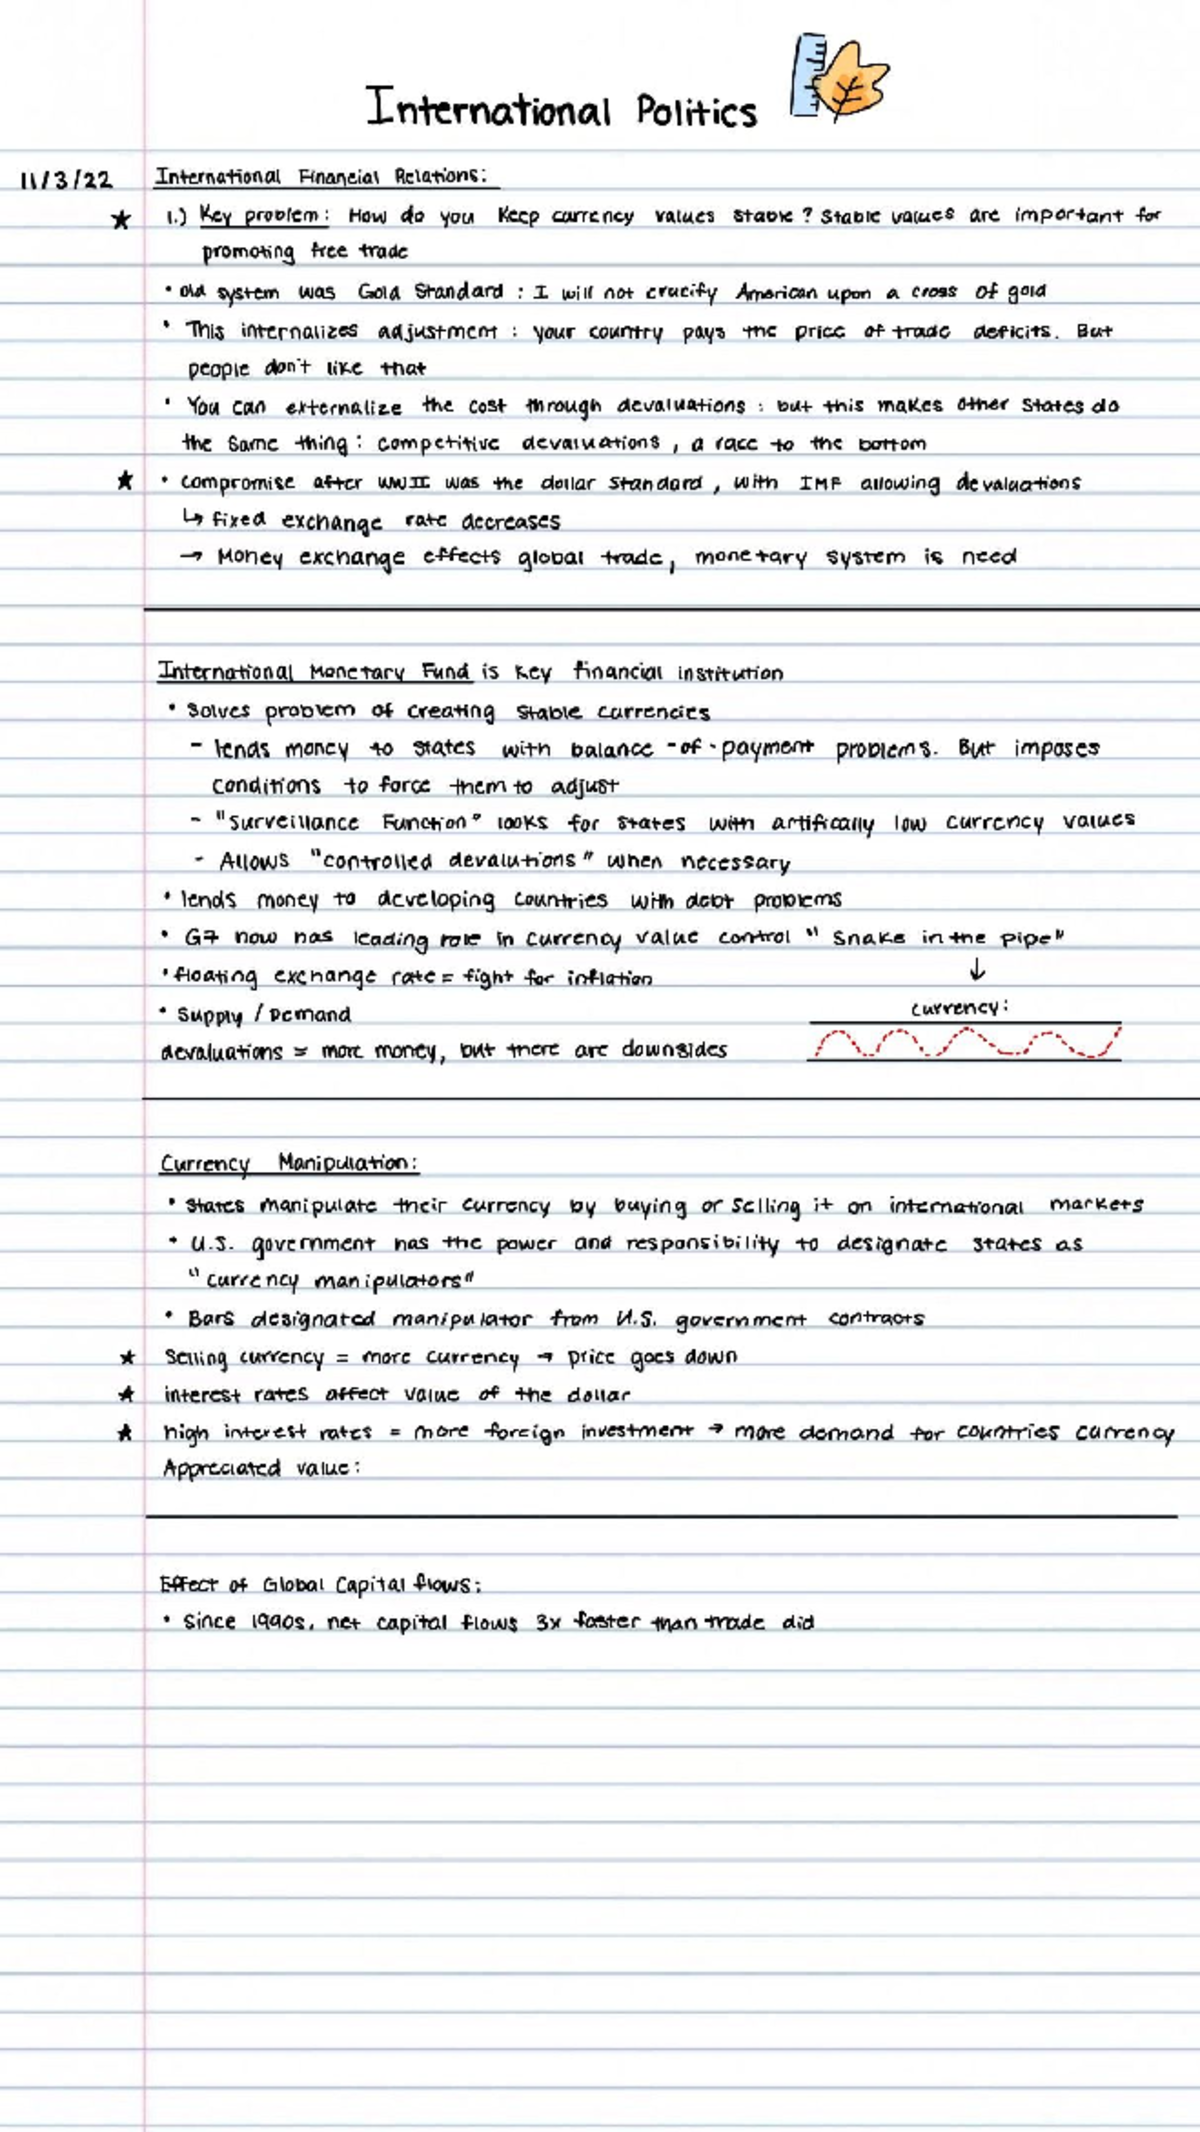 International Politics
11/3/22 International Financial Relations:
★ 1.) Key problem: How do you keep currency values stable? Stable values are important for
promoting free trade
• old system was Gold Standard: I will not crucify American upon a cross of gold
• This internalizes adjustment: your country pays the price of trade deficits. But
people don't like that
• You can externalize the cost through devaluations: but this makes other States do
the same thing: competitive devaluations, a race to the bottom
★ • compromise after WWII was the dollar standard, with IMF allowing devaluations
↳ fixed exchange rate decreases
→ Money exchange effects global trade, monetary system is need
International Monetary Fund is key financial institution
• Solves problem of creating stable currencies
- lends money to states with balance-of-payment problems. But imposes
conditions to force them to adjust
- "Surveillance Function" looks for states with artifically low currency values
- Allows "controlled devalutions" when necessary
• lends money to developing countries with debt problems
• G7 now has leading role in currency value control "Snake in the pipe"
• floating exchange rate = fight for inflation ↓
• Supply / Demand currency:
devaluations = more money, but there are downsides
Currency Manipulation:
• States manipulate their currency by buying or selling it on international markets
• U.S. government has the power and responsibility to designate states as
"currency manipulators"
• Bars designated manipulator from U.S. government contracts
★ Selling currency = more currency → price goes down
★ interest rates affect value of the dollar
★ high interest rates = more foreign investment → more demand for countries currency
Appreciated value:
Effect of Global Capital flows:
• Since 1990s, net capital flows 3x faster than trade did